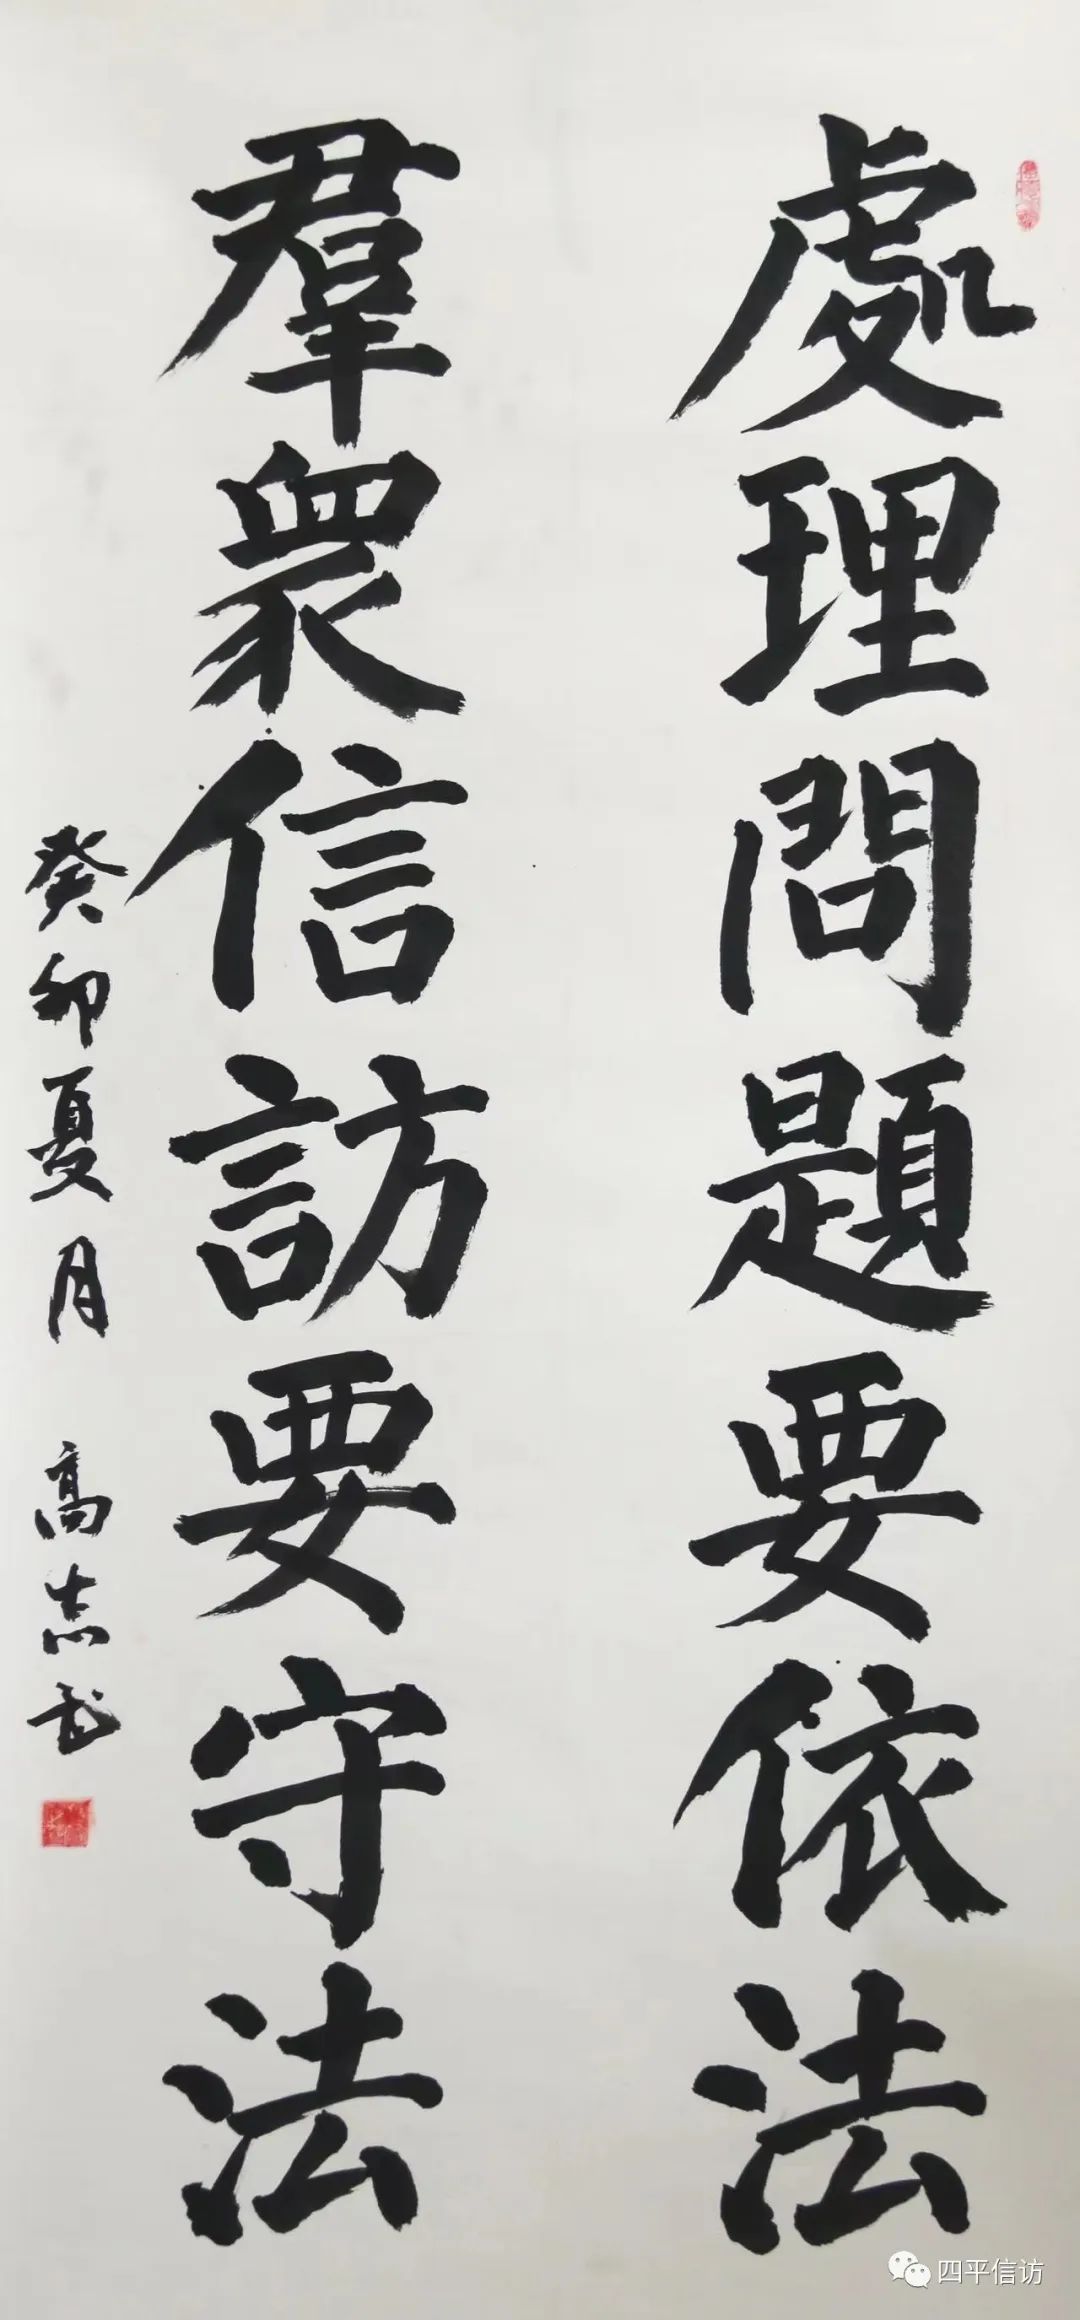 處理問題要依法
羣衆信訪要守法
癸卯夏月 高志武
四平信访